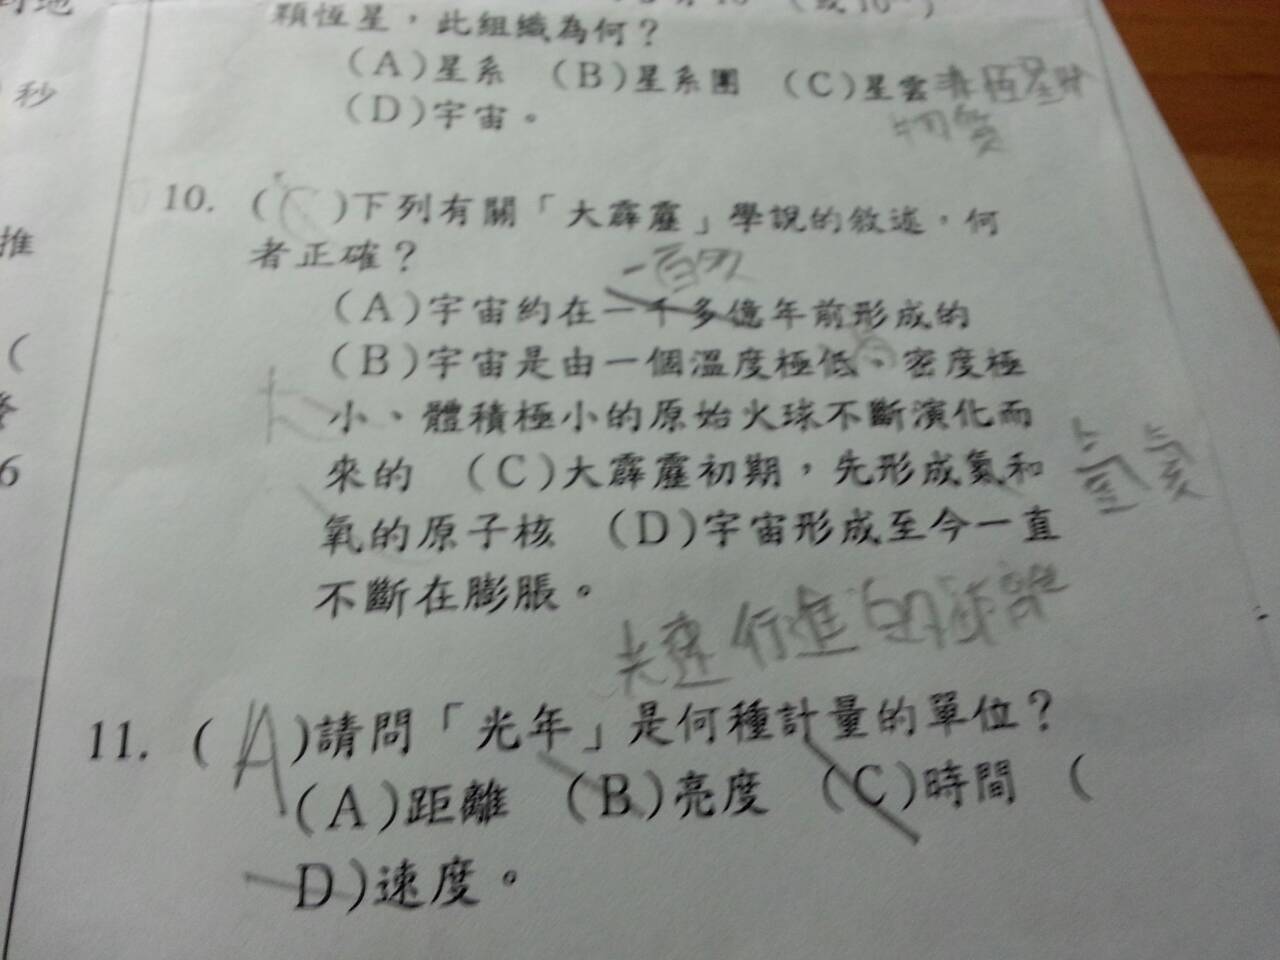 秒
推
(
6
顆恆星，此組織為何？
(A)星系 (B)星系團 (C)星雲
(D)宇宙。
物質
10. (C)下列有關「大霹靂」學說的敘述，何
者正確？
一百多
(A)宇宙約在一千多億年前形成的
(B)宇宙是由一個溫度極低、密度極
小、體積極小的原始火球不斷演化而
來的 (C)大霹靂初期，先形成氮和
氧的原子核 (D)宇宙形成至今一直
不斷在膨脹。
氫氦
光速行進的距離
11. (A)請問「光年」是何種計量的單位？
(A)距離 (B)亮度 (C)時間 (
D)速度。